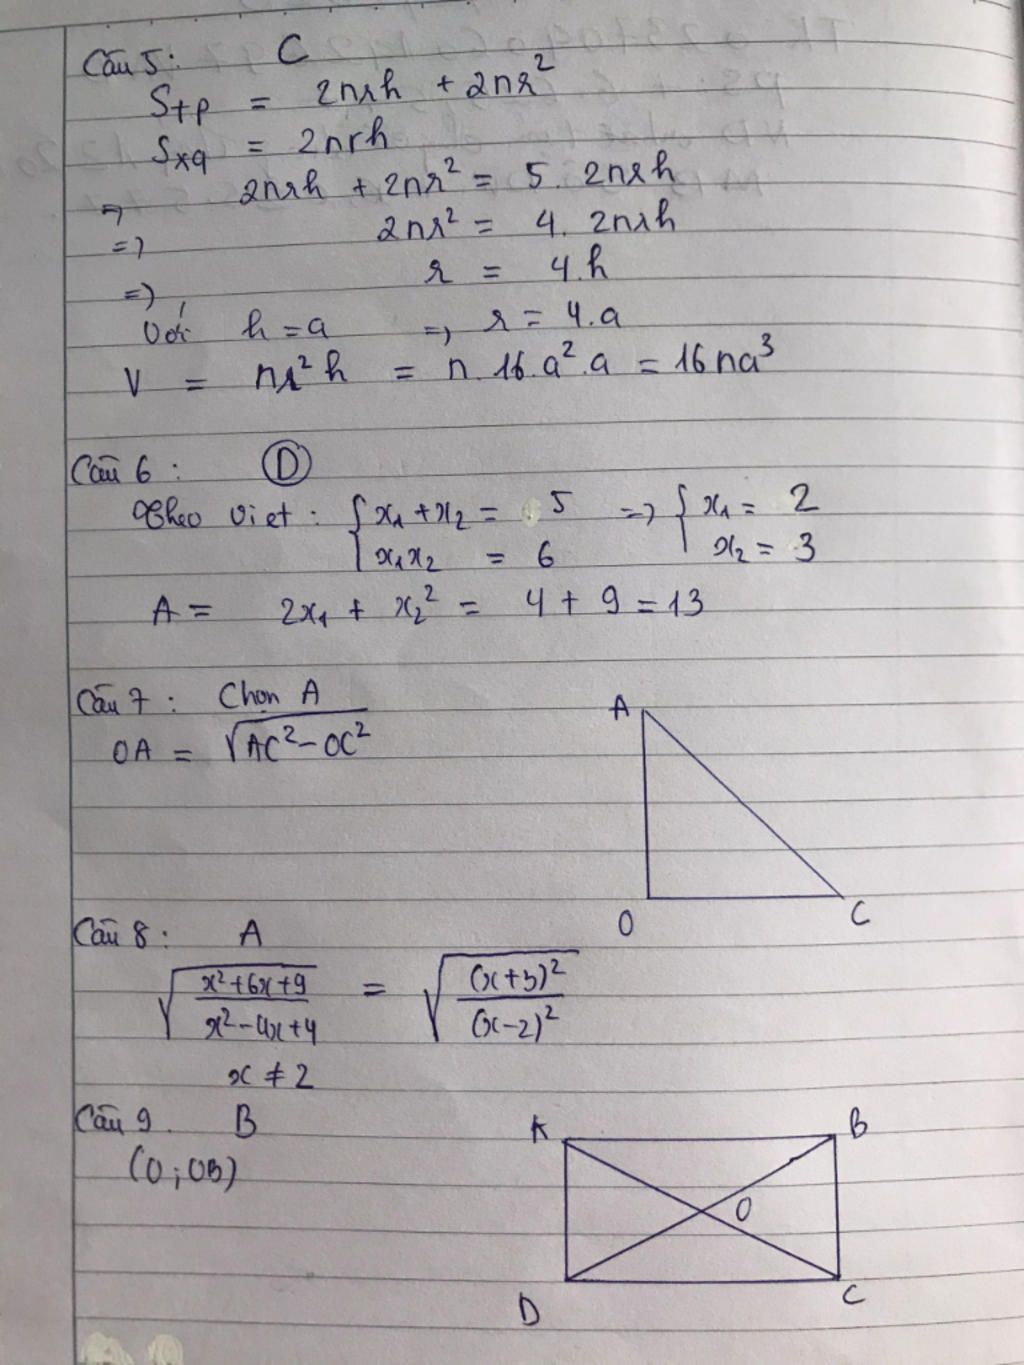 Câu 5: C
Stp = 2πrh + 2πr²
Sxq = 2πrh
=> 2πrh + 2πr² = 5. 2πrh
=> 2πr² = 4. 2πrh
=> r = 4.h
Với h = a => r = 4.a
V = πr²h = π.16.a².a = 16πa³
Câu 6: D
Theo Viet: { x₁ + x₂ = 5 => { x₁ = 2
x₁x₂ = 6 x₂ = 3
A = 2x₁ + x₂² = 4 + 9 = 13
Câu 7: Chọn A
OA = √(AC² - OC²)
A
O
C
Câu 8: A
√((x²+6x+9)/(x²-4x+4)) = √((x+3)²/(x-2)²)
x ≠ 2
Câu 9. B
(O; OB)
A
B
O
D
C